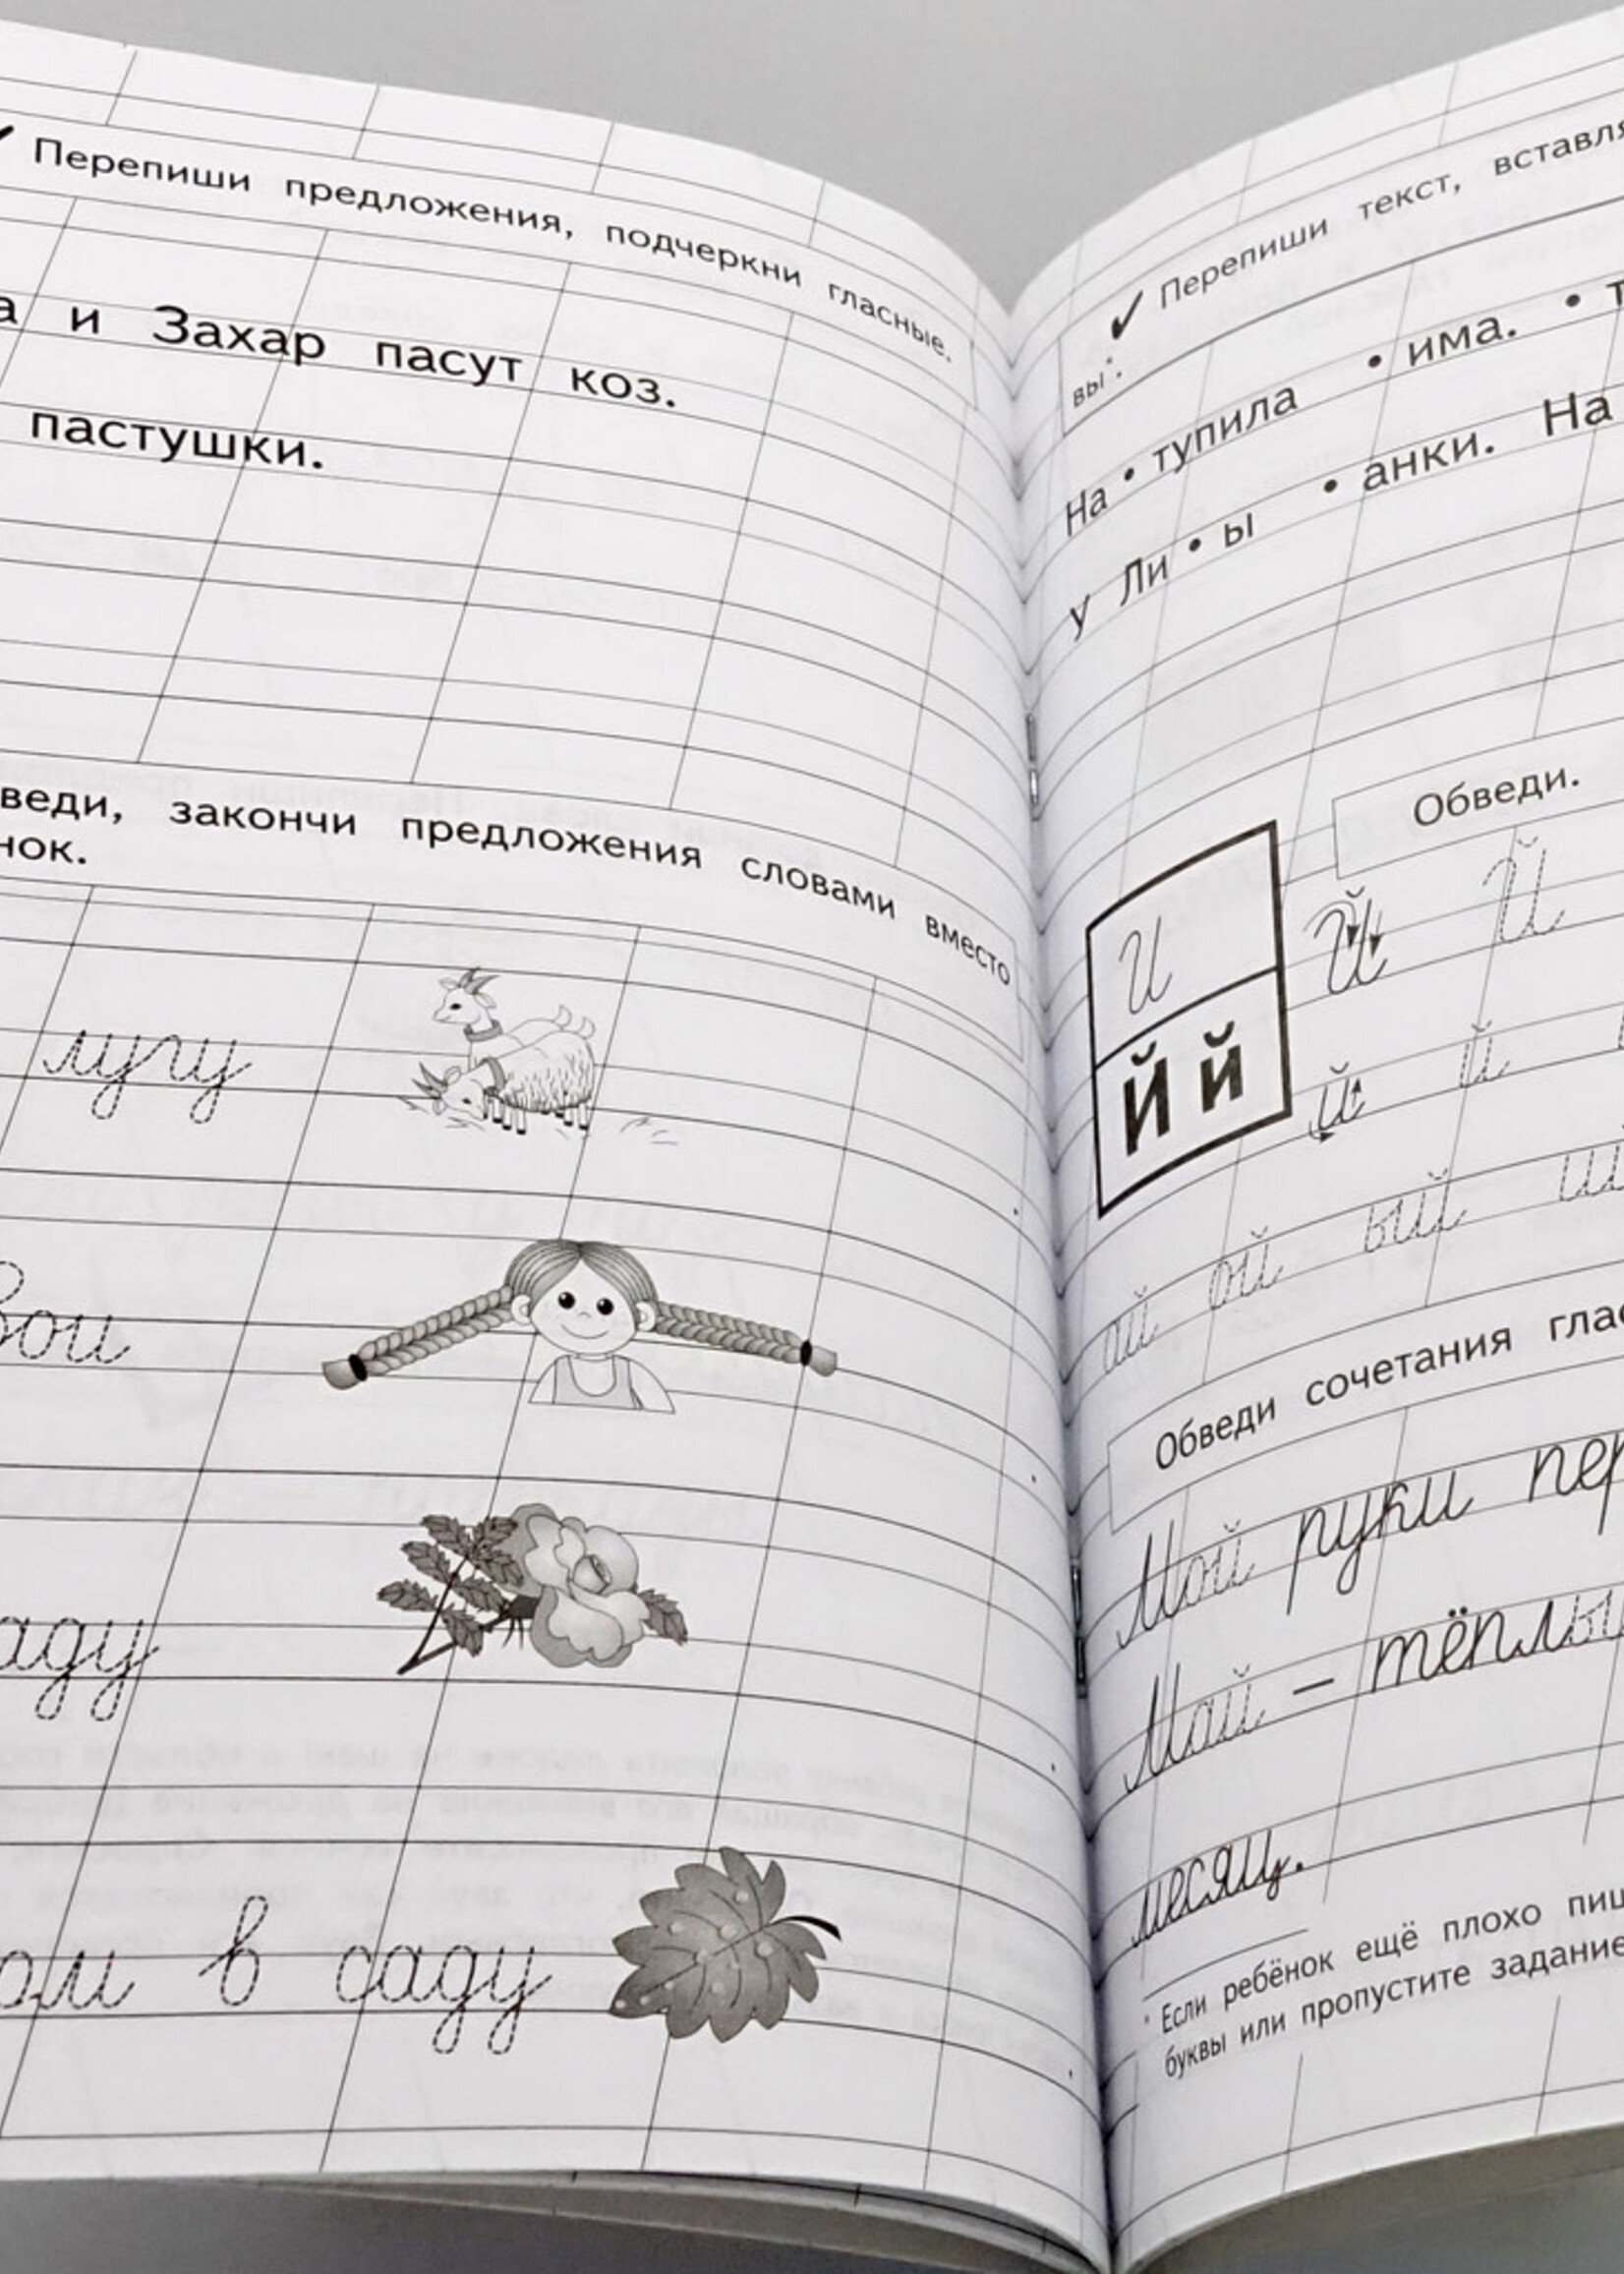 Перепиши предложения, подчеркни гласные.
и Захар пасут коз.
пастушки.
веди, закончи предложения словами вместо
нок.
лугу
вои
аду
ом в саду
✓ Перепиши текст, вставля
вы
На•тупила •има. •т
у Ли•ы •анки. На
Обведи.
И
Й й
Й Й
й й
ай ой ый
Обведи сочетания глас
Мой руки пер
Май – тёплы
месяц.
Если ребёнок ещё плохо пиш
буквы или пропустите задание